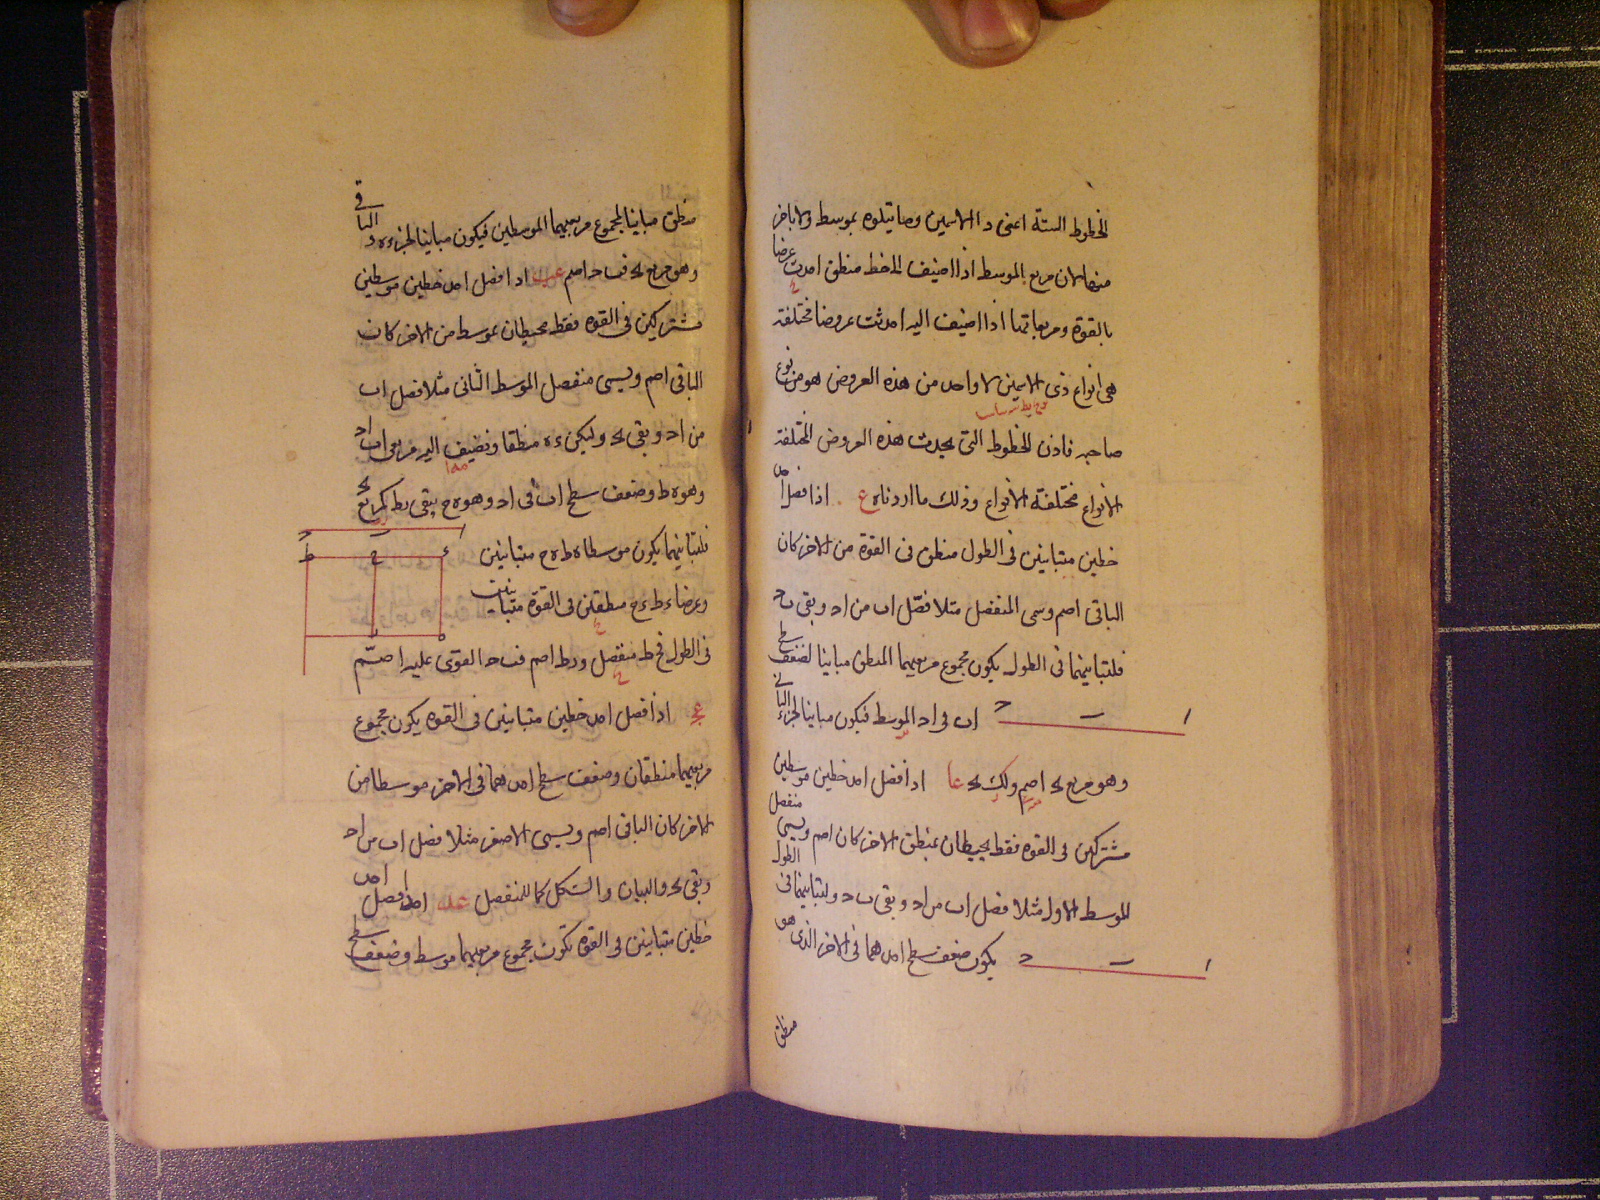 الخطوط الستة اعنى ذا الاسمين وما يتلوه بموسط ولا باخر
منها لان مربع الموسط اذا اضيف الى خط منطق احدث عرضا
بالقوة ومربعاتها اذا اضيف اليه احدثت عروضا مختلفة
هى انواع ذى الاسمين لا واحد من هذه العروض هو من نوع
صاحبه فاذن الخطوط التى يحدث هذه العروض المختلفة
الانواع مختلفة الانواع وذلك ما اردناه ع اذا فصل احد
خطين متباينين فى الطول منطق فى القوة من الاخر كان
الباقى اصم وسمى المنفصل مثلا فصل اب من اح وبقى ب ح
فلتباينهما فى الطول يكون مجموع مربعيهما المنطق مباينا لضعف سطح
اب فى اح الموسط فيكون مباينا لجزء الباقى
ا ب ح
وهو مربع ب ح اصم و ب ح عا اذا فصل احد خطين موسطين
مشتركين فى القوة فقط يحيطان بمنطق الاخر كان اصم ويسمى منفصل
الموسط الاول مثلا فصل اب من اح وبقى ب ح ولتباينهما فى الطول
يكون ضعف سطح احدهما فى الاخر الذى هو
ا ب ح
منطق
منطق مباينا لمجموع مربعيهما الموسطين فيكون مباينا لجزءه الباقى
وهو مربع ب ح ف ب ح اصم عب اذا فصل احد خطين موسطين
مشتركين فى القوة فقط محيطان بموسط من الاخر كان
الباقى اصم ويسمى منفصل الموسط الثانى مثلا فصل اب
من اح وبقى ب ح وليكن ء ه منطقا ونضيف اليه مربعى اب اح
وهو ه ط وضعف سطح اب فى اح وهو ه ح يبقى ر ط كمربع ب ح
فلتباينهما يكون موسطا ه ط ه ح متباينين
وعرضا ء ط ء ح منطقين فى القوة متباينين
فى الطول فح ط منفصل و ر ط اصم ف ب ح القوى عليه اصم
عج اذا فصل احد خطين متباينين فى القوة يكون مجموع
مربعيهما منطقان وضعف سطح احدهما فى الاخر موسطا من
الاخر كان الباقى اصم ويسمى الاصغر مثلا فصل اب من اح
وبقى ب ح والبيان والشكل كما للمنفصل عد اذا فصل احد
خطين متباينين فى القوة تكون مجموع مربعيهما موسط وضعف سطح